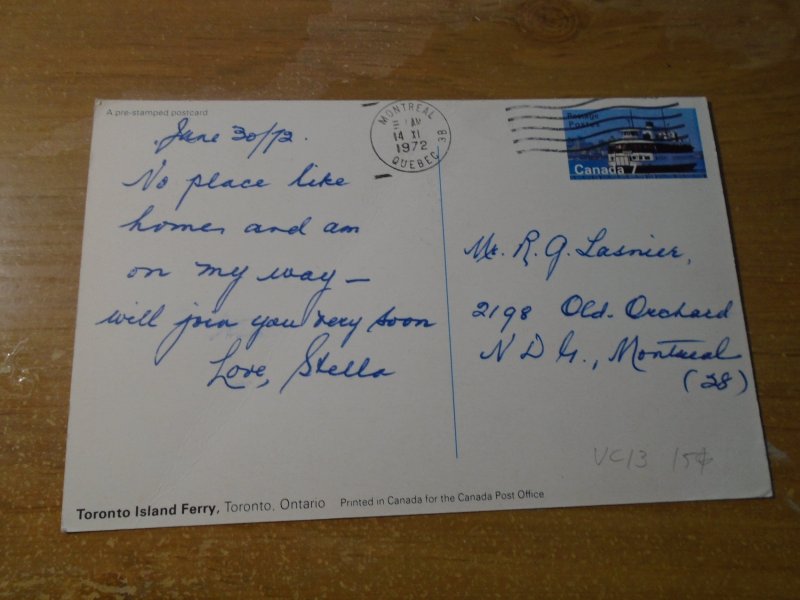 A pre-stamped postcard
June 30/72.
No place like
home, and am
on my way —
will join you very soon
Love, Stella
MONTREAL
AM
14 XI
1972
QUEBEC
3B
Postage
Postes
Canada 7
Mr. R. G. Lasnier,
2198 Old. Orchard
N D G., Montreal
(28)
VC13 15¢
Toronto Island Ferry, Toronto, Ontario Printed in Canada for the Canada Post Office